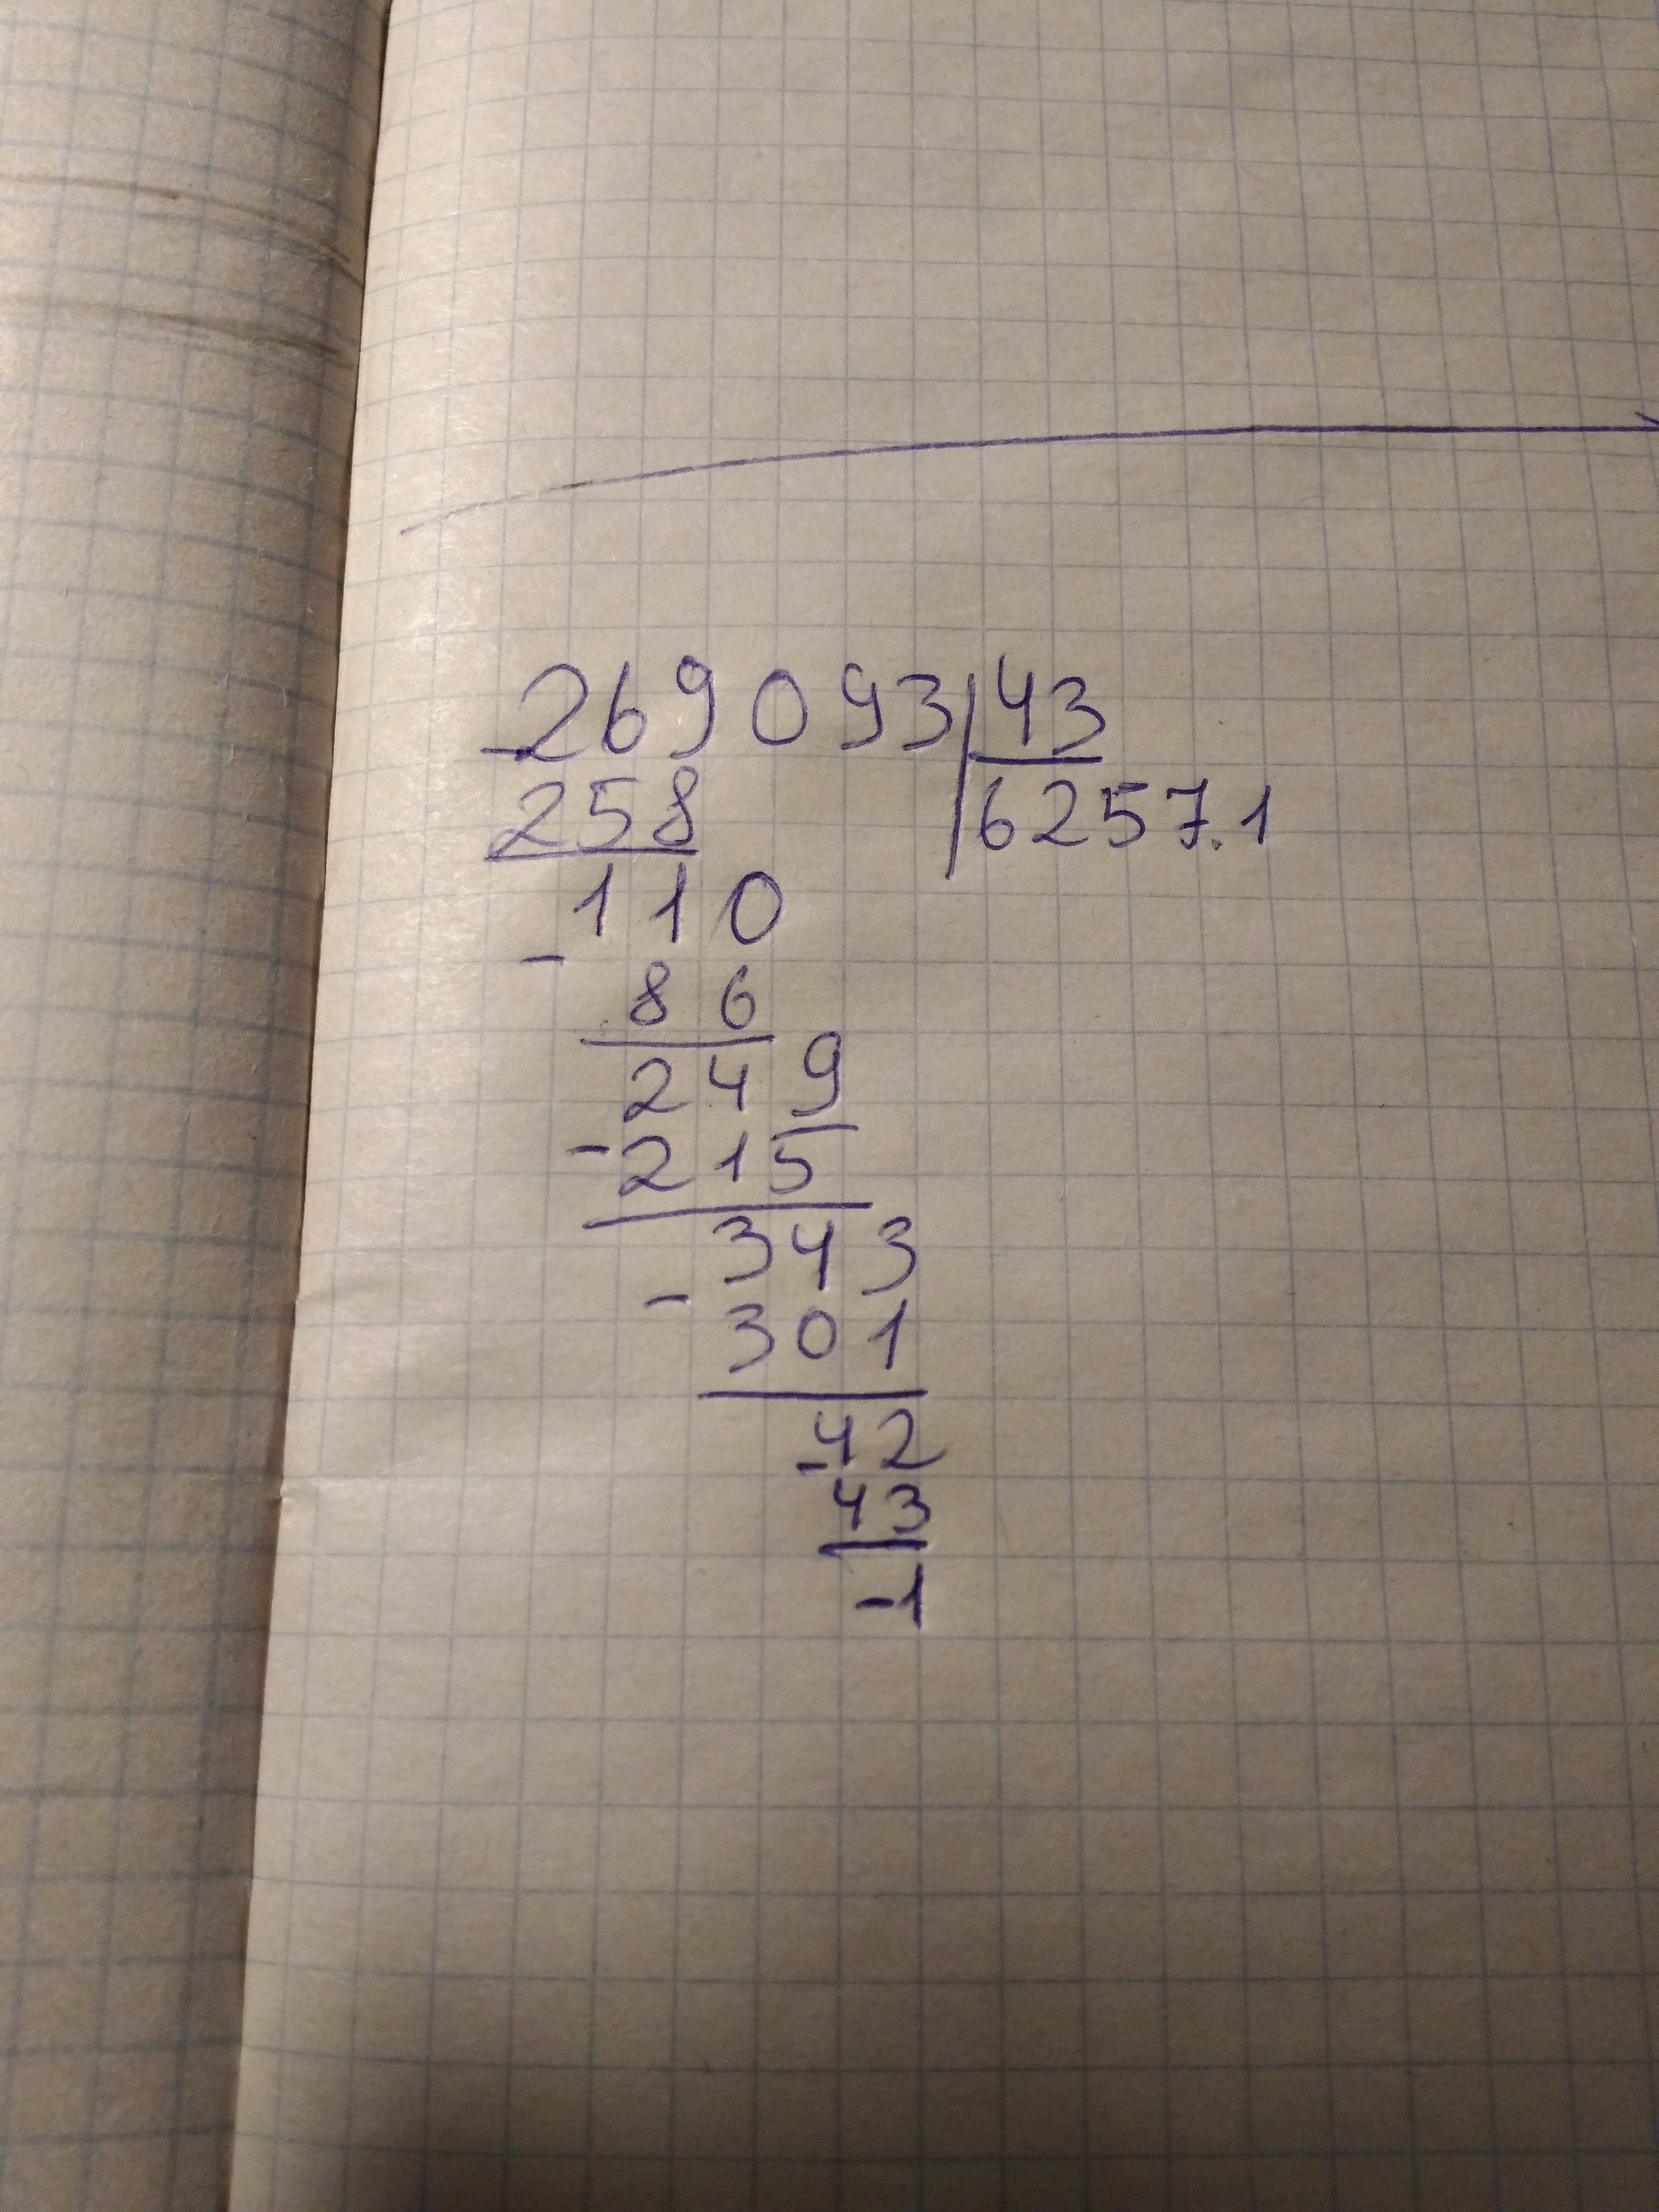 -269093|43
258 6257.1
110
-
86
249
-215
343
-
301
-42
43
-1